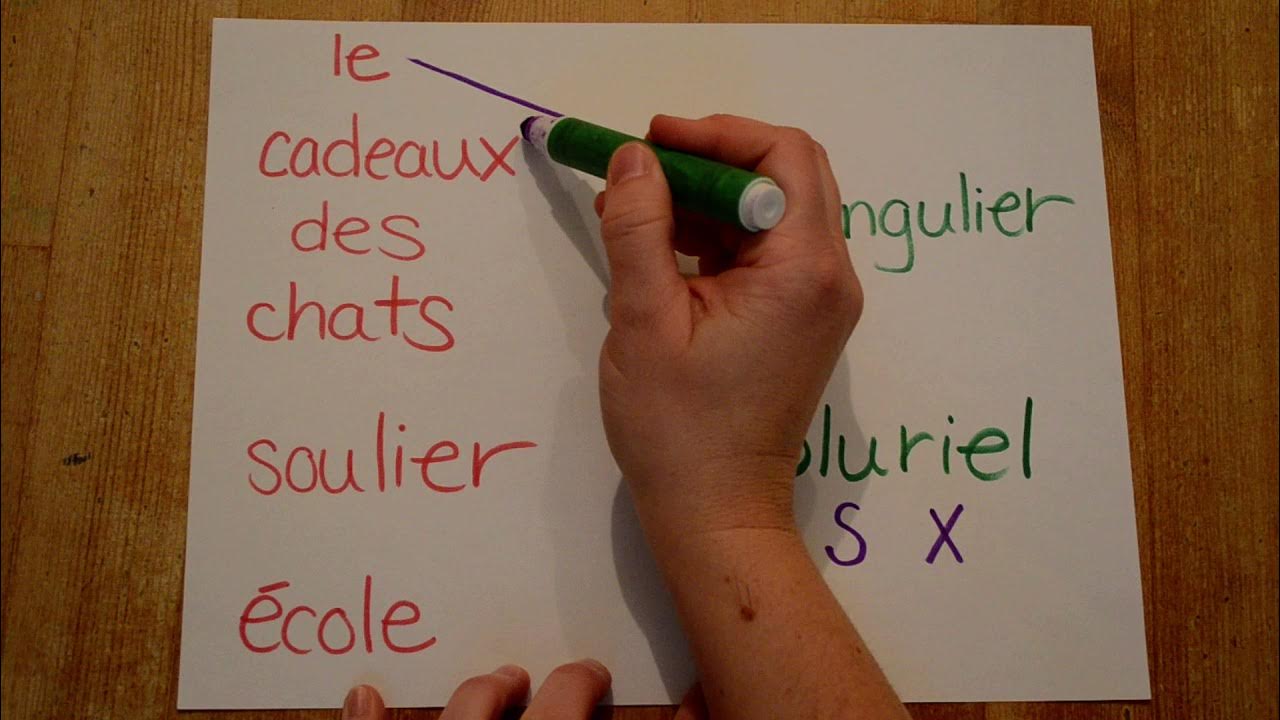 le
cadeaux
des
chats
soulier
école
ngulier
pluriel
S X